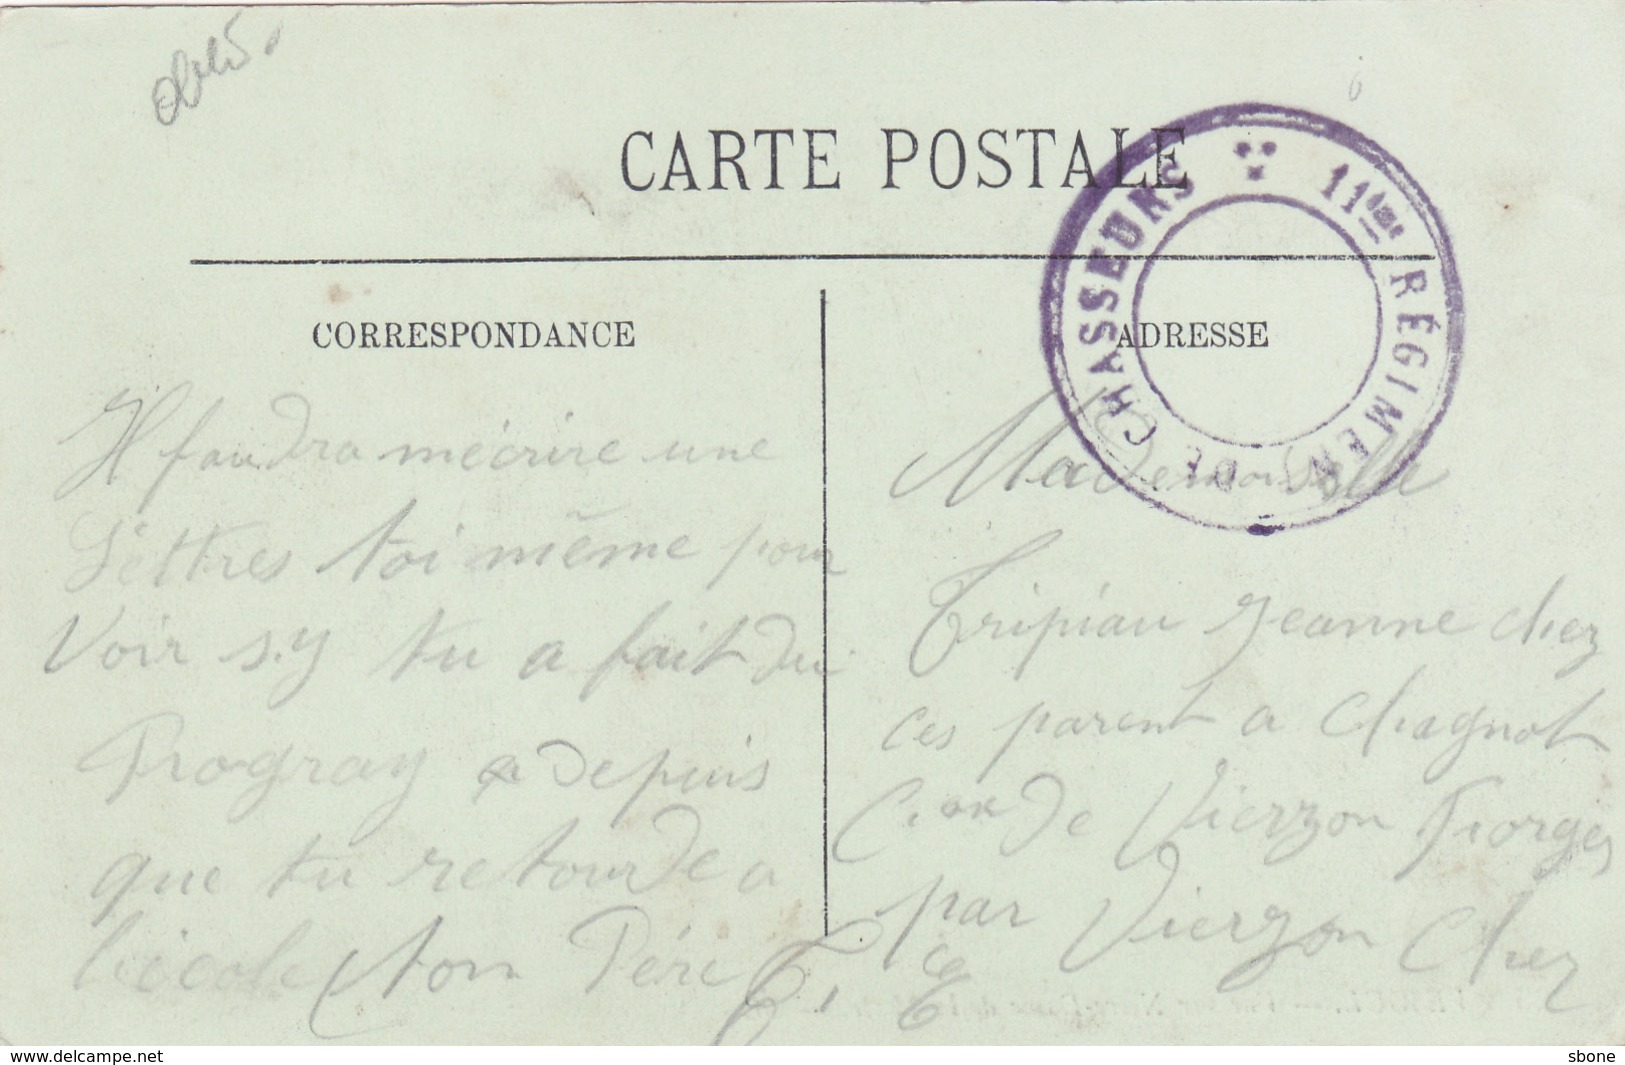 CARTE POSTALE
11ème RÉGIMENT DE CHASSEURS
CORRESPONDANCE
ADRESSE
Il faudra mécrire une
Léttres toi même pour
Voir s.y tu a fait du
Progray depuis
que tu retourde a
l'école ton Pére T. E
Mademoiselle
Tripiau Jeanne chez
ces parent a Chagnot
C.on de Vierzon Forges
par Vierzon Cher
www.delcampe.net
sbone